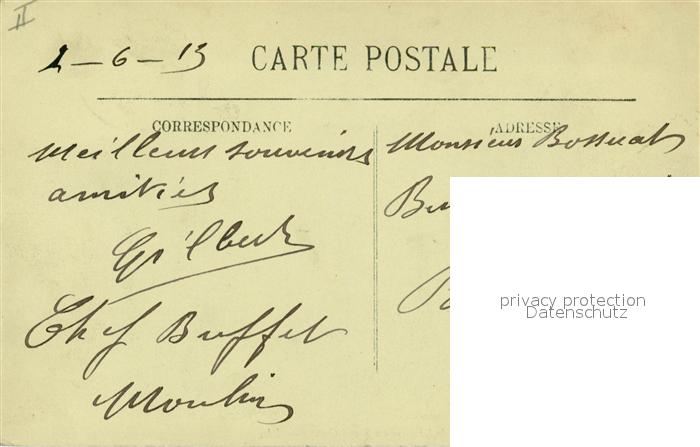 II
2-6-13
CARTE POSTALE
CORRESPONDANCE
Meilleurs souvenirs
amitiés
Gilbert
Chef Buffet
Moulins
ADRESSE
Monsieur Bossuat
privacy protection
Datenschutz